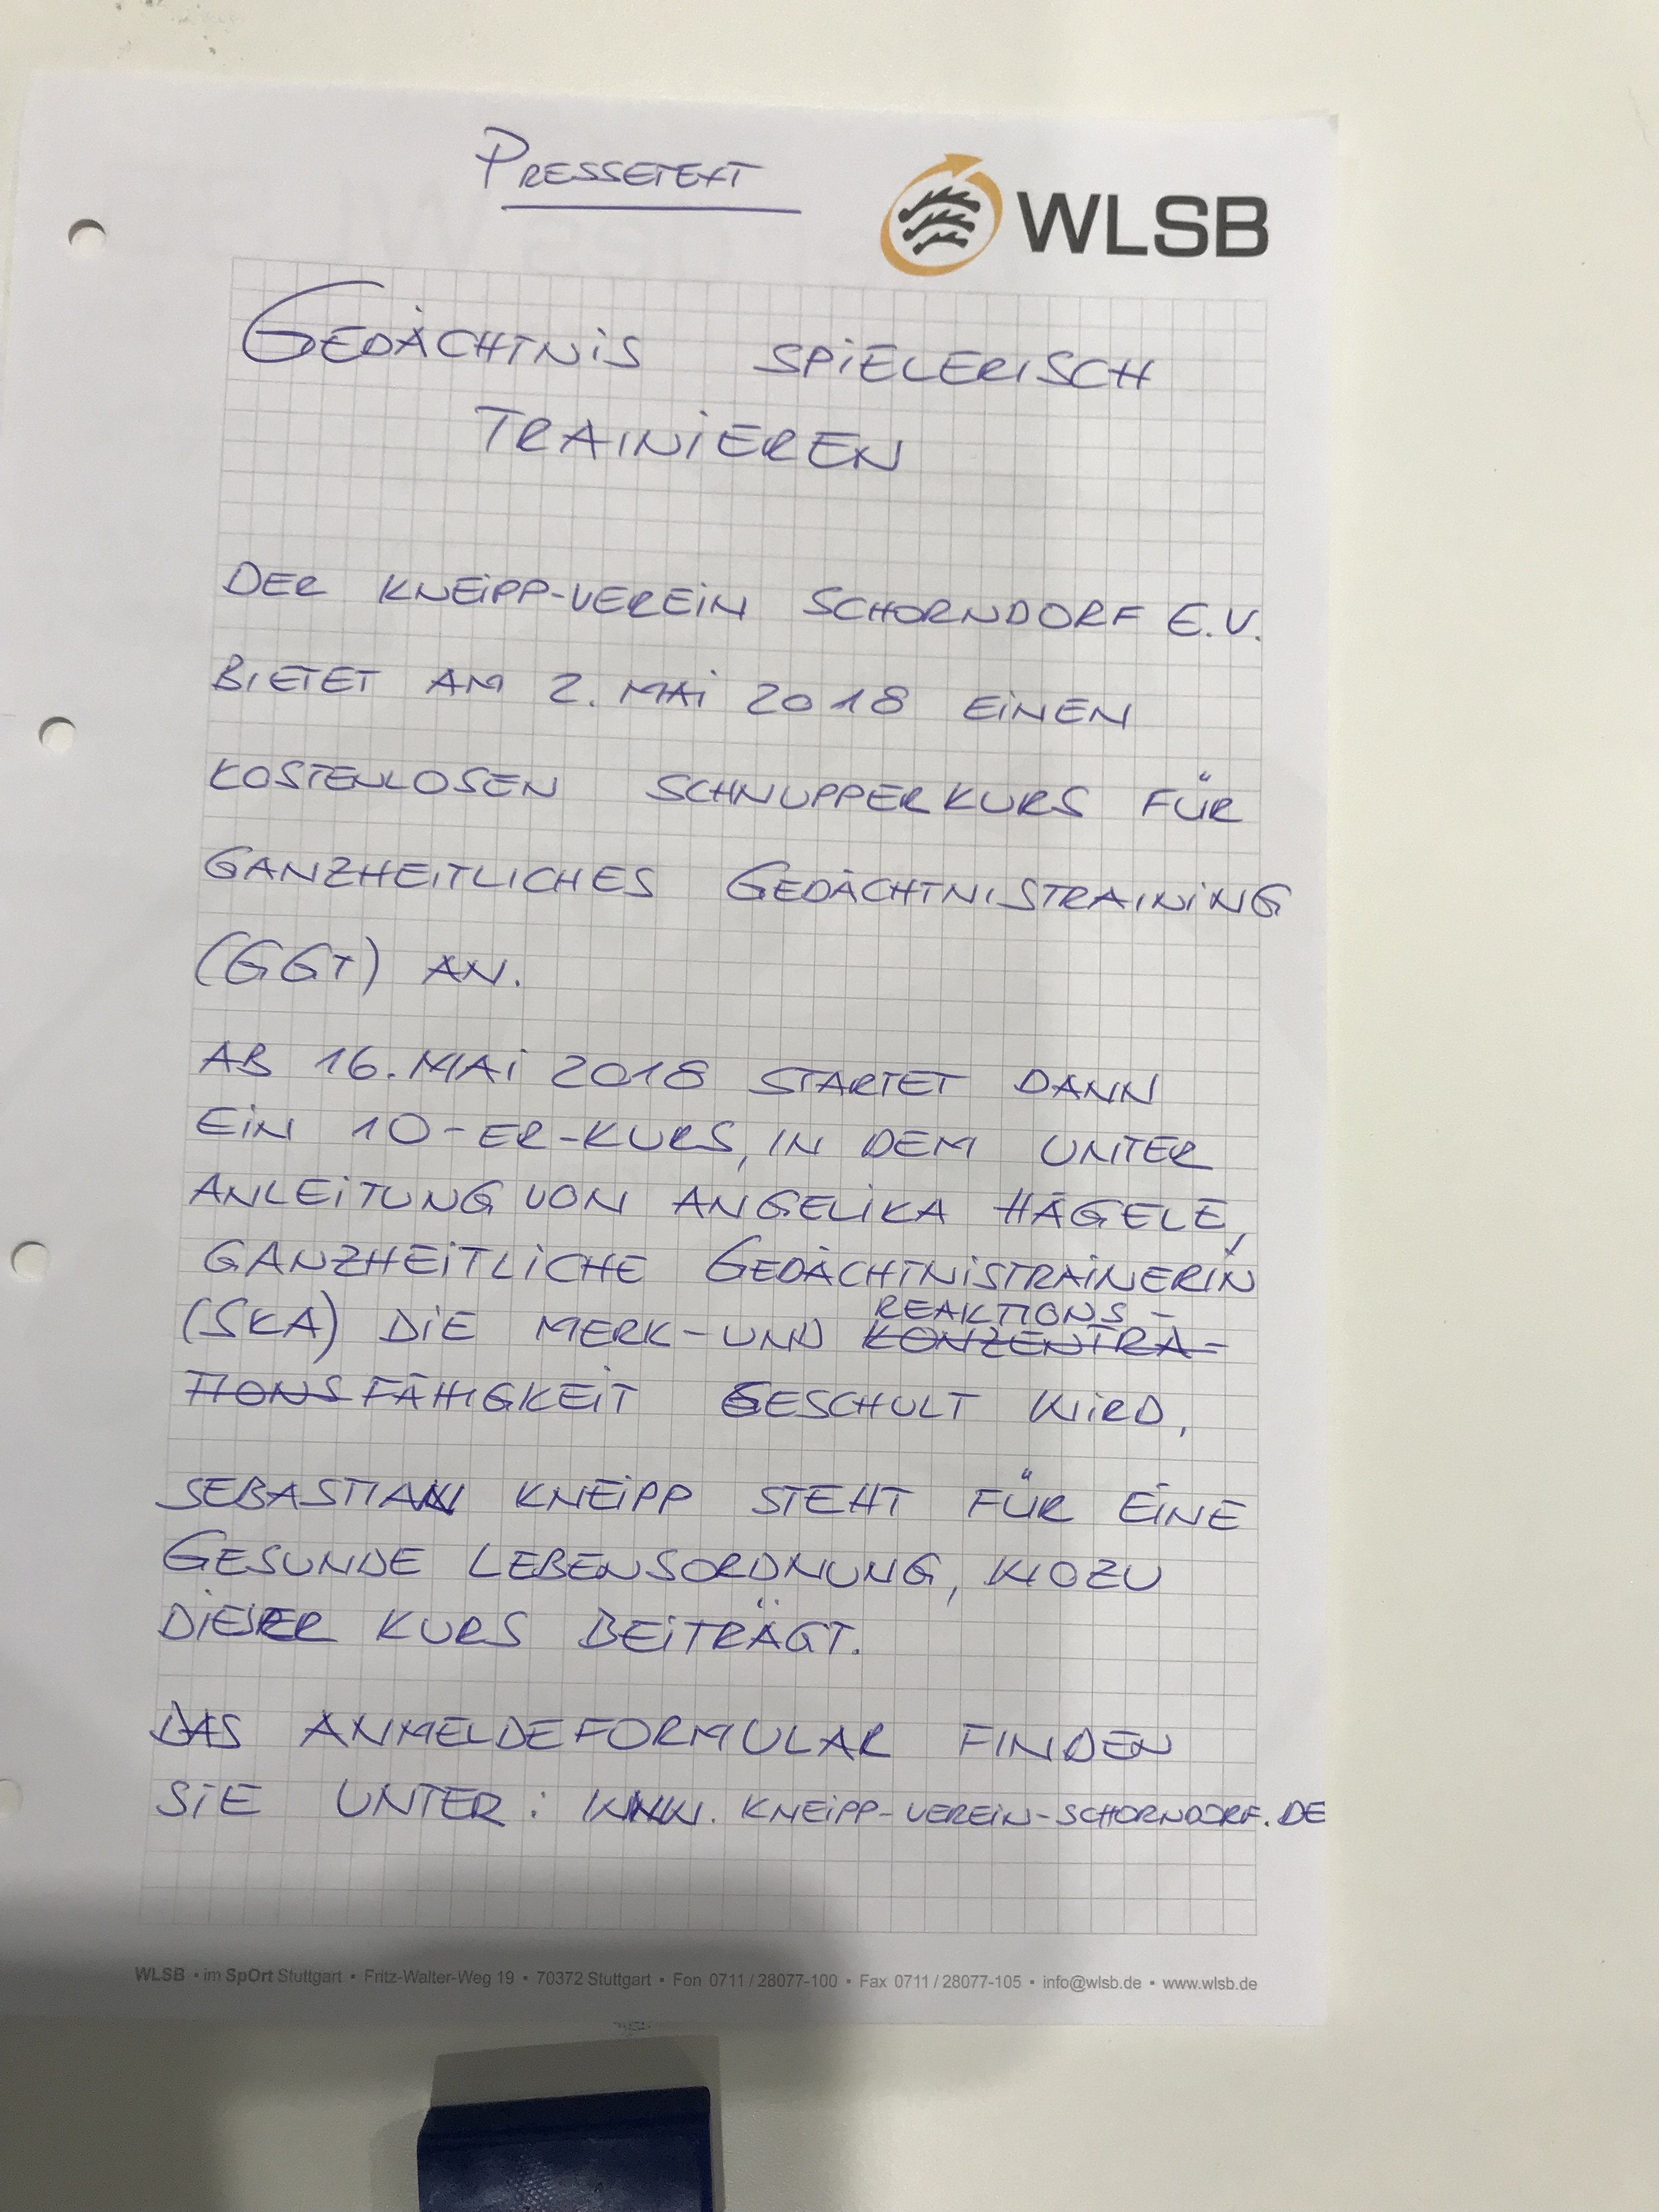 PRESSETEXT
WLSB
GEDÄCHTNIS SPIELERISCH
TRAINIEREN
DER KNEIPP-VEREIN SCHORNDORF E.V.
BIETET AM 2. MAI 2018 EINEN
KOSTENLOSEN SCHNUPPERKURS FÜR
GANZHEITLICHES GEDÄCHTNISTRAINING
(GGT) AN.
AB 16. MAI 2018 STARTET DANN
EIN 10-ER-KURS, IN DEM UNTER
ANLEITUNG VON ANGELIKA HÄGELE,
GANZHEITLICHE GEDÄCHTNISTRAINERIN
REAKTIONS-
(SKA) DIE MERK-UND KONZENTRA-
TIONSFÄHIGKEIT GESCHULT WIRD.
SEBASTIAN KNEIPP STEHT FÜR EINE
GESUNDE LEBENSORDNUNG, WOZU
DIESER KURS BEITRÄGT.
DAS ANMELDEFORMULAR FINDEN
SIE UNTER: WWW.KNEIPP-VEREIN-SCHORNDORF.DE
WLSB • im SpOrt Stuttgart • Fritz-Walter-Weg 19 • 70372 Stuttgart • Fon 0711 / 28077-100 • Fax 0711 / 28077-105 • info@wlsb.de • www.wlsb.de